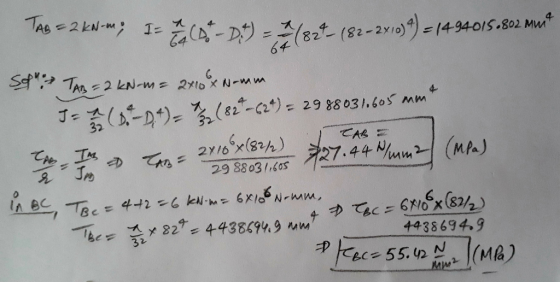 T_AB = 2 kN-m; J = π/64 (D_o^4 - D_i^4) = π/64 (82^4 - (82-2×10)^4) = 1494015.802 mm^4
Sol^n:→ T_AB = 2 kN-m = 2×10^6 N-mm
J = π/32 (D_o^4 - D_i^4) = π/32 (82^4 - 62^4) = 2988031.605 mm^4
τ_AB/r = T_AB/J_AB ⇒ τ_AB = 2×10^6×(82/2)/2988031.605 ⇒ τ_AB = 27.44 N/mm^2 (MPa)
in BC, T_BC = 4+2 = 6 kN-m = 6×10^6 N-mm.
J_BC = π/32 × 82^4 = 4438694.9 mm^4 ⇒ τ_BC = 6×10^6×(82/2)/4438694.9
⇒ τ_BC = 55.42 N/mm^2 (MPa)